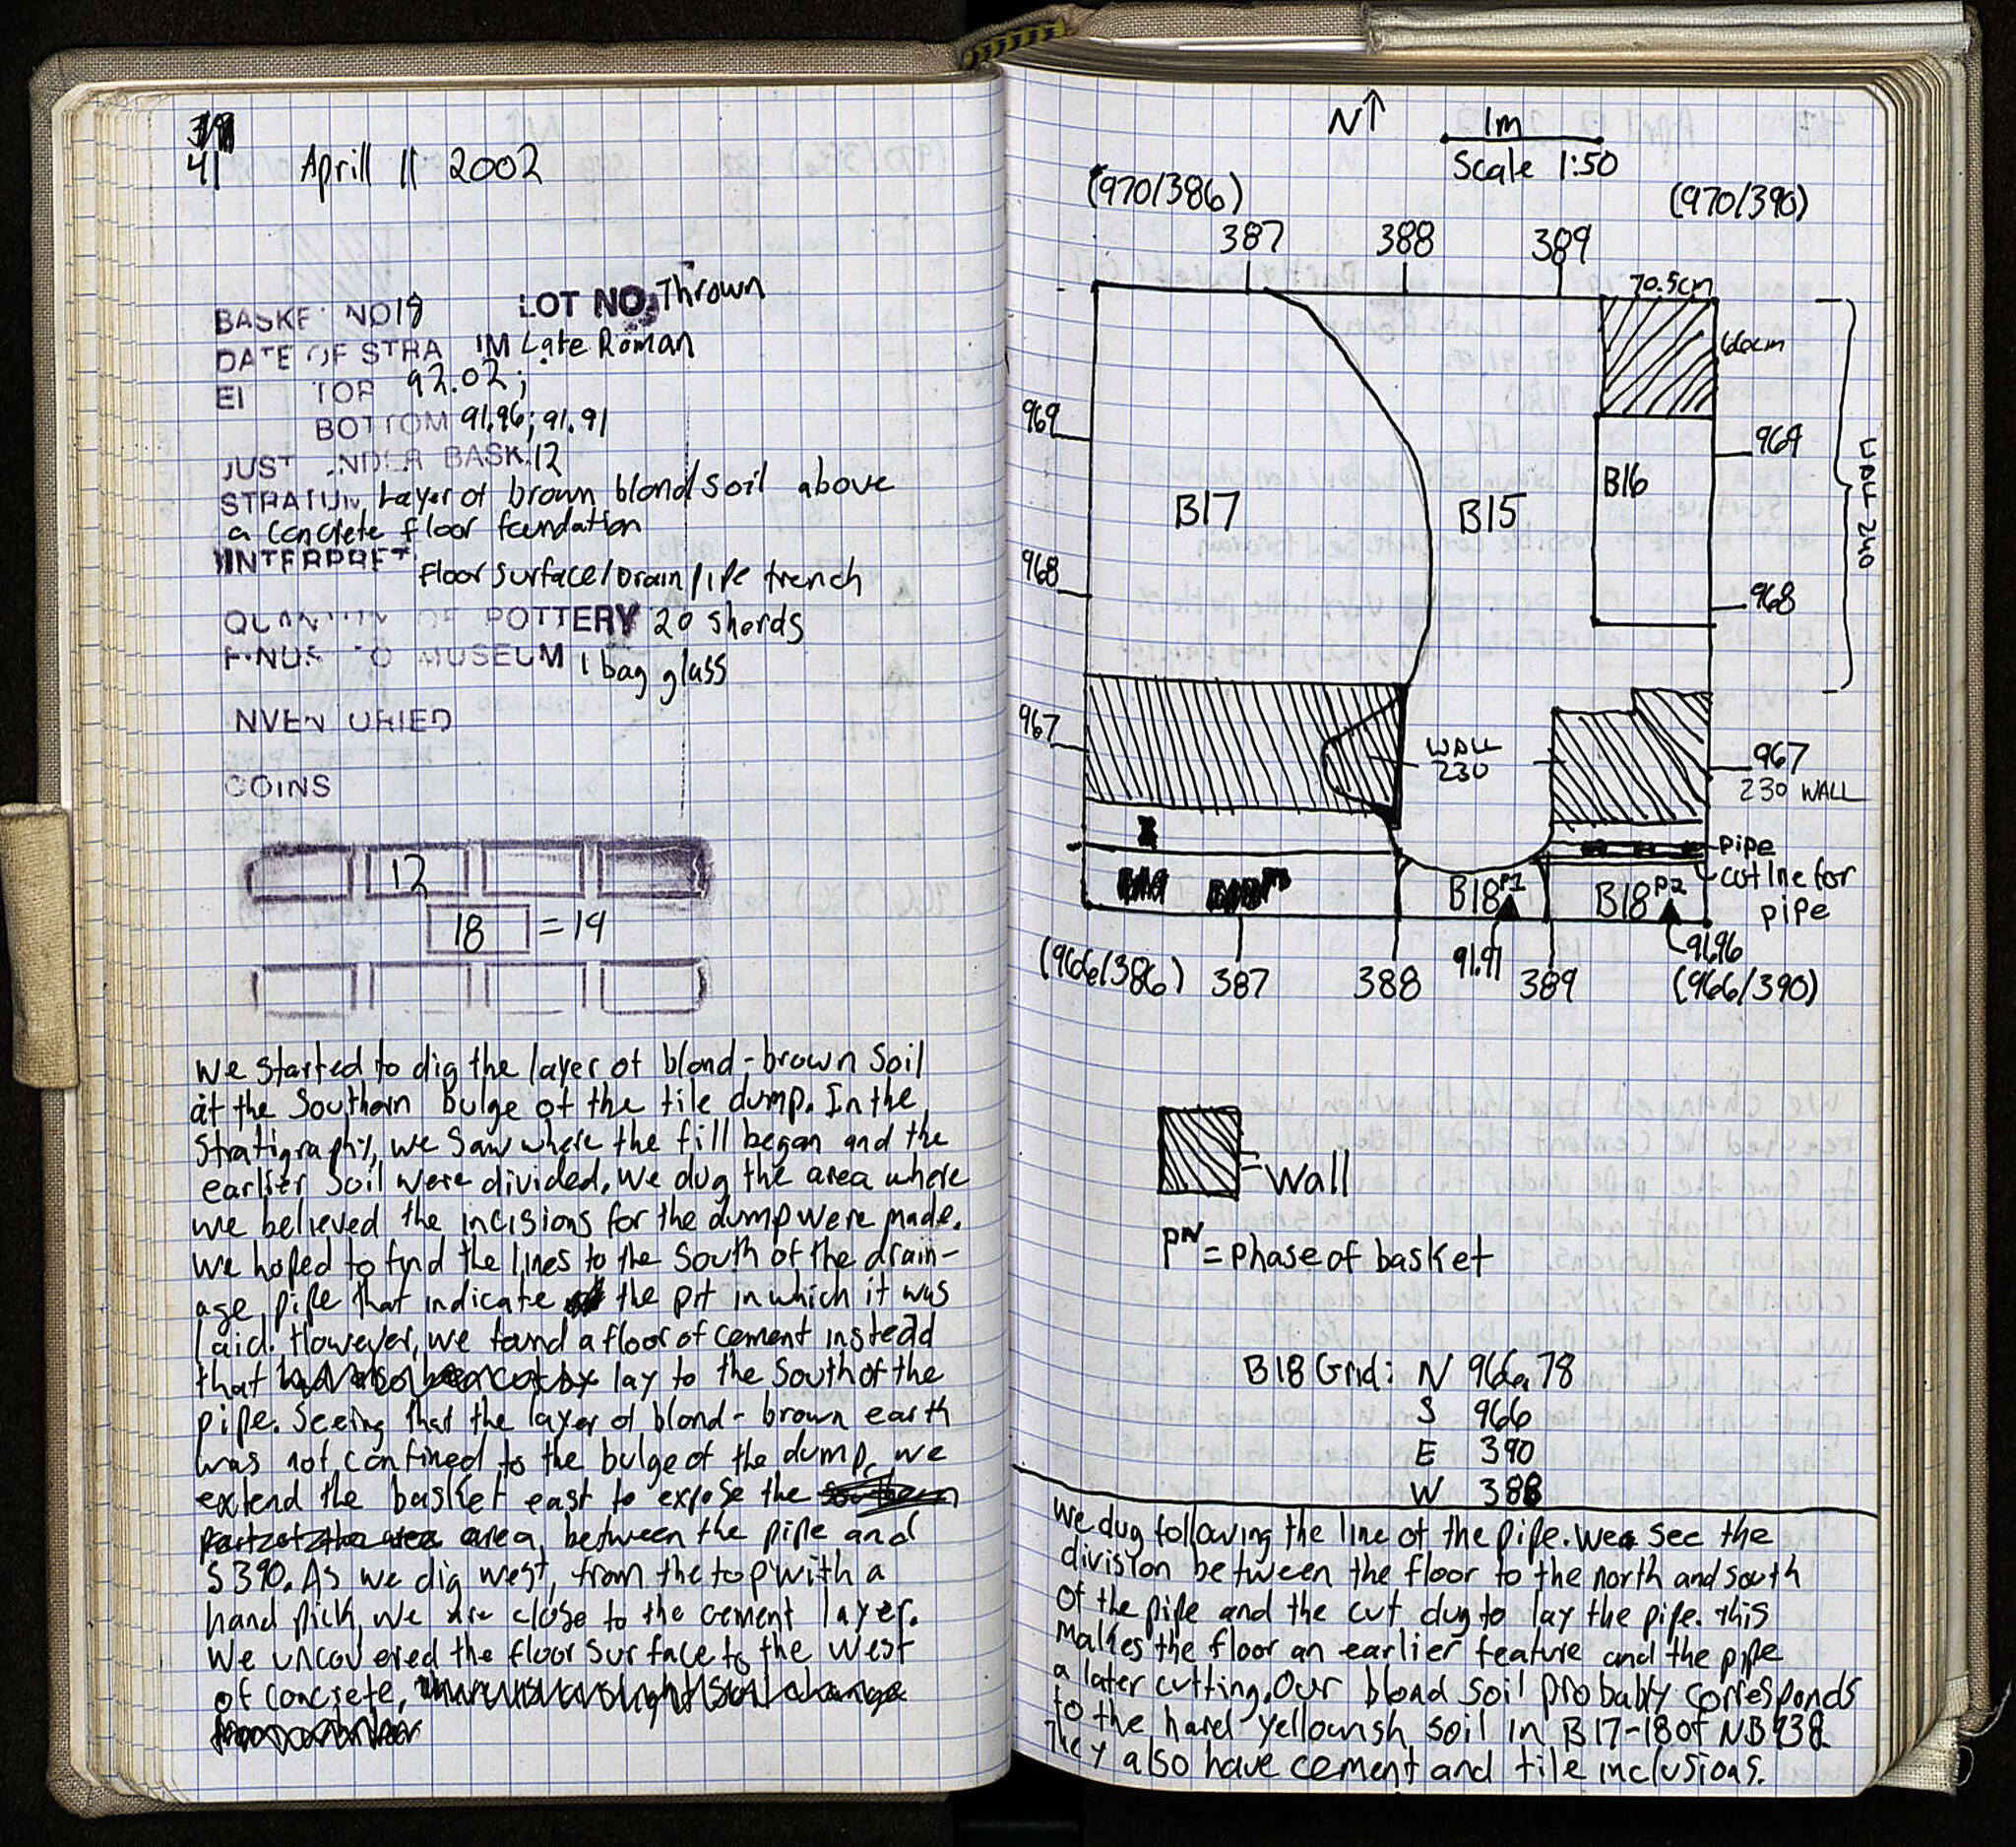 41 Aprill 11 2002
BASKE NO 18 LOT NO. Thrown
DATE OF STRA M Late Roman
El TOP 92.02;
BOTTOM 91.96; 91.91
JUST NDER BASK. 12
STRATUM Layer of brown blond soil above
a concrete floor foundation
INTERPRET Floor surface/Drain pipe trench
QUANTITY OF POTTERY 20 sherds
FINDS TO MUSEUM 1 bag glass
NVEN ORIED
COINS
12
18 = 19
we started to dig the layer of blond-brown soil
at the southern bulge of the tile dump. In the
stratigraphy, we saw where the fill began and the
earlier soil were divided. we dug the area where
we believed the incisions for the dump were made.
we hoped to find the lines to the south of the drain-
age pipe that indicate the pit in which it was
laid. However, we found a floor of cement instead
that lay to the south of the
pipe. Seeing that the layer of blond-brown earth
was not confined to the bulge of the dump, we
extend the basket east to expose the
area between the pipe and
S390. As we dig west, from the top with a
hand pick, we are close to the cement layer.
We uncovered the floor surface to the west
of concrete,
N↑
1m
Scale 1:50
(970/386) (970/390)
387 388 389
70.5cm
66cm
969 969
B17 B15 B16
WALL 240
968 968
967 WALL 230 967
230 WALL
pipe
cut line for
pipe
B18 P1 B18 P2
91.91 91.96
(966/386) 387 388 389 (966/390)
= Wall
PN = phase of basket
B18 Grid: N 966.78
S 966
E 390
W 388
we dug following the line of the pipe. We see the
division between the floor to the north and south
of the pipe and the cut dug to lay the pipe. this
makes the floor an earlier feature and the pipe
a later cutting. Our blond soil probably corresponds
to the hard yellowish soil in B17-18 of NB 938.
They also have cement and tile inclusions.